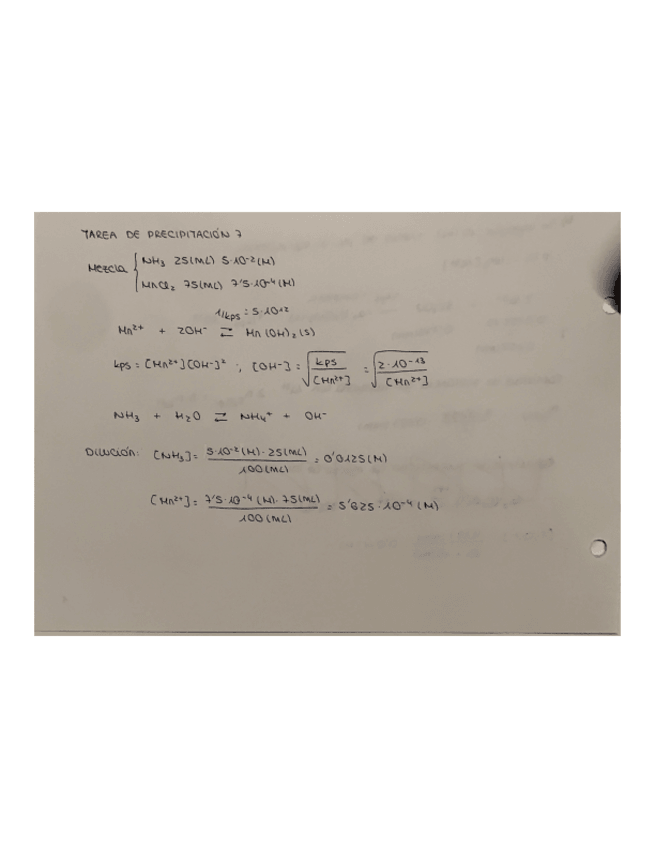 TAREA DE PRECIPITACIÓN 7
MEZCLA { NH₃ 25(ML) 5·10⁻²(M)
MnCl₂ 75(ML) 7'5·10⁻⁴(M)
1/kps = 5·10¹²
Mn²⁺ + 2OH⁻ ⇄ Mn(OH)₂(s)
kps = [Mn²⁺][OH⁻]² ; [OH⁻] = √(kps/[Mn²⁺]) = √(2·10⁻¹³/[Mn²⁺])
NH₃ + H₂O ⇄ NH₄⁺ + OH⁻
DILUCIÓN: [NH₃] = 5·10⁻²(M)·25(ML)/100(ML) = 0'0125(M)
[Mn²⁺] = 7'5·10⁻⁴(M)·75(ML)/100(ML) = 5'625·10⁻⁴(M)